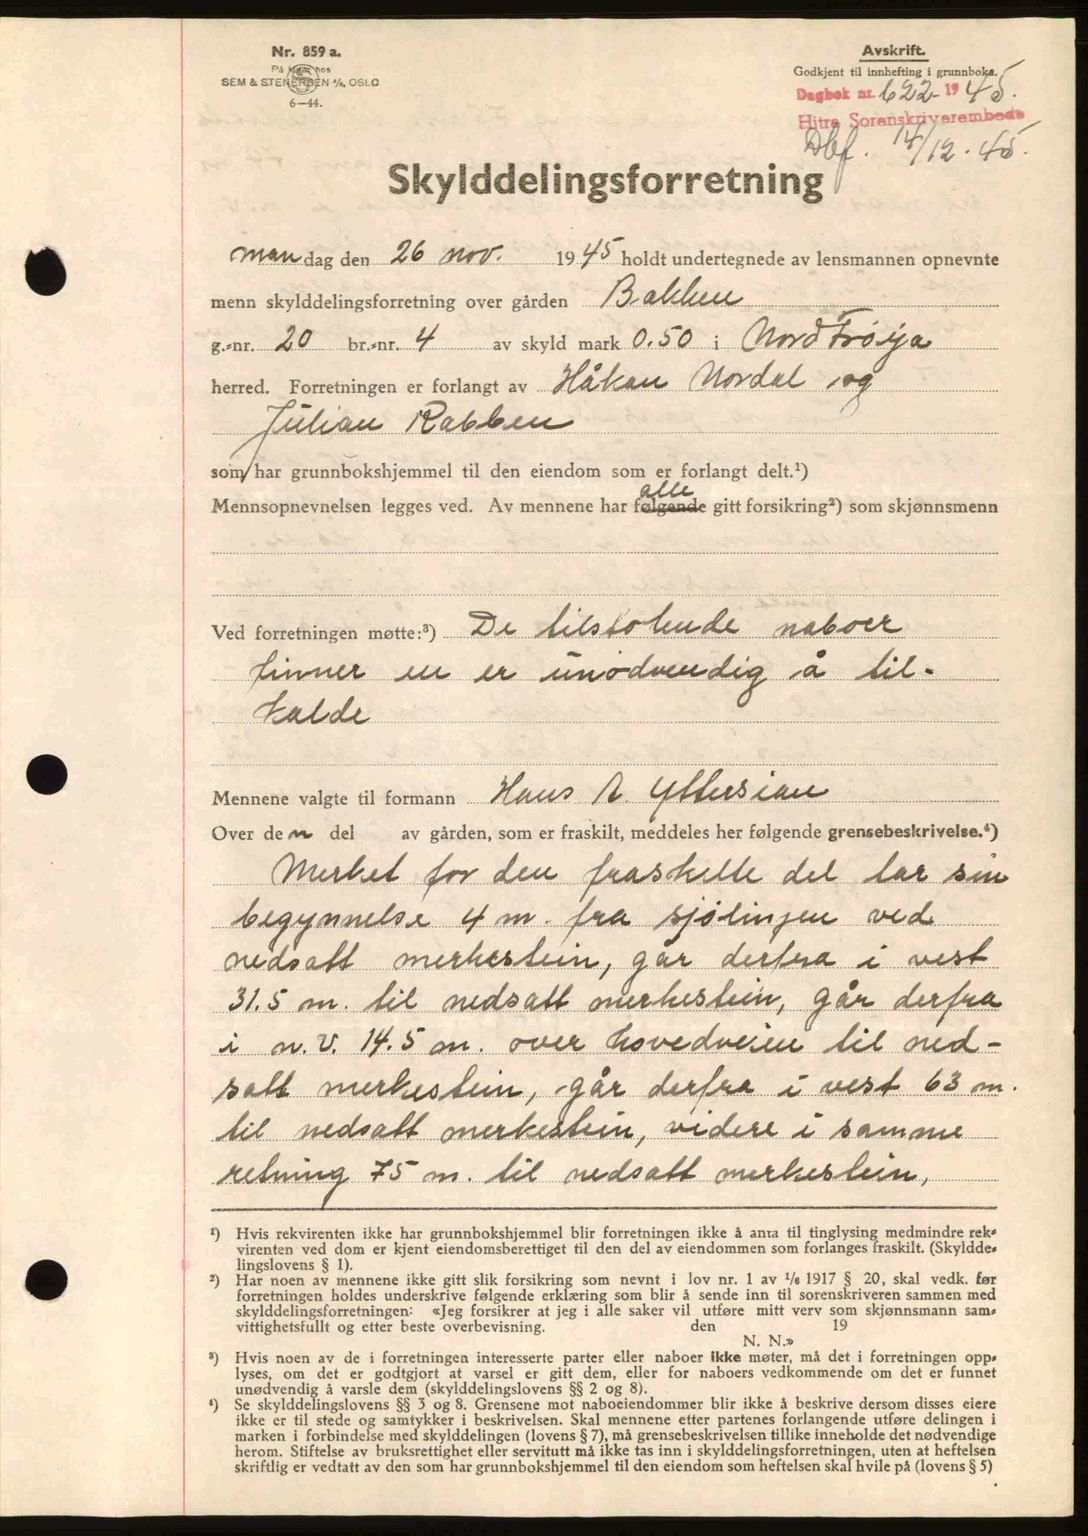 Nr. 859 a.
På lager hos
SEM & STENERSEN A/S, OSLO
6—44.
Avskrift.
Godkjent til innhefting i grunnboka.
Dagbok nr. 622 1945.
Hitra Sorenskriverembede
Dbf. 14/12.45.
Skylddelingsforretning
mandag den 26 nov. 1945 holdt undertegnede av lensmannen opnevnte
menn skylddelingsforretning over gården Bakken
g.-nr. 20 br.-nr. 4 av skyld mark 0.50 i Nord Frøya
herred. Forretningen er forlangt av Håkon Nordal og
Julian Rabben
som har grunnbokshjemmel til den eiendom som er forlangt delt.¹)
alle
Mennsopnevnelsen legges ved. Av mennene har følgende gitt forsikring²) som skjønnsmenn
Ved forretningen møtte:³) De tilstøtende naboer
finner en er unødvendig å til-
kalde
Mennene valgte til formann Hans A Yttersian
Over den del av gården, som er fraskilt, meddeles her følgende grensebeskrivelse.⁴)
Merket for den fraskilte del tar sin
begynnelse 4 m. fra sjølinjen ved
nedsatt merkestein, går derfra i vest
31.5 m. til nedsatt merkestein, går derfra
i n.v. 14.5 m. over hovedveien til ned-
satt merkestein, går derfra i vest 63 m.
til nedsatt merkestein, videre i samme
retning 75 m. til nedsatt merkestein,
¹) Hvis rekvirenten ikke har grunnbokshjemmel blir forretningen ikke å anta til tinglysing medmindre rek-
virenten ved dom er kjent eiendomsberettiget til den del av eiendommen som forlanges fraskilt. (Skyldde-
lingslovens § 1).
²) Har noen av mennene ikke gitt slik forsikring som nevnt i lov nr. 1 av 1/6 1917 § 20, skal vedk. før
forretningen holdes underskrive følgende erklæring som blir å sende inn til sorenskriveren sammen med
skylddelingsforretningen: «Jeg forsikrer at jeg i alle saker vil utføre mitt verv som skjønnsmann sam-
vittighetsfullt og etter beste overbevisning. den 19
N. N.»
³) Hvis noen av de i forretningen interesserte parter eller naboer ikke møter, må det i forretningen opp-
lyses, om det er godtgjort at varsel er gitt dem, eller for naboers vedkommende om det er funnet
unødvendig å varsle dem (skylddelingslovens §§ 2 og 8).
⁴) Se skylddelingslovens §§ 3 og 8. Grensene mot naboeiendommer blir ikke å beskrive dersom disses eiere
ikke er til stede og samtykker i beskrivelsen. Skal mennene etter partenes forlangende utføre delingen i
marken i forbindelse med skylddelingen (lovens § 7), må grensebeskrivelsen tillike inneholde det nødvendige
herom. Stiftelse av bruksrettighet eller servitutt må ikke tas inn i skylddelingsforretningen, uten at heftelsen
skriftlig er vedtatt av den som har grunnbokshjemmel til den eiendom som heftelsen skal hvile på (lovens § 5)